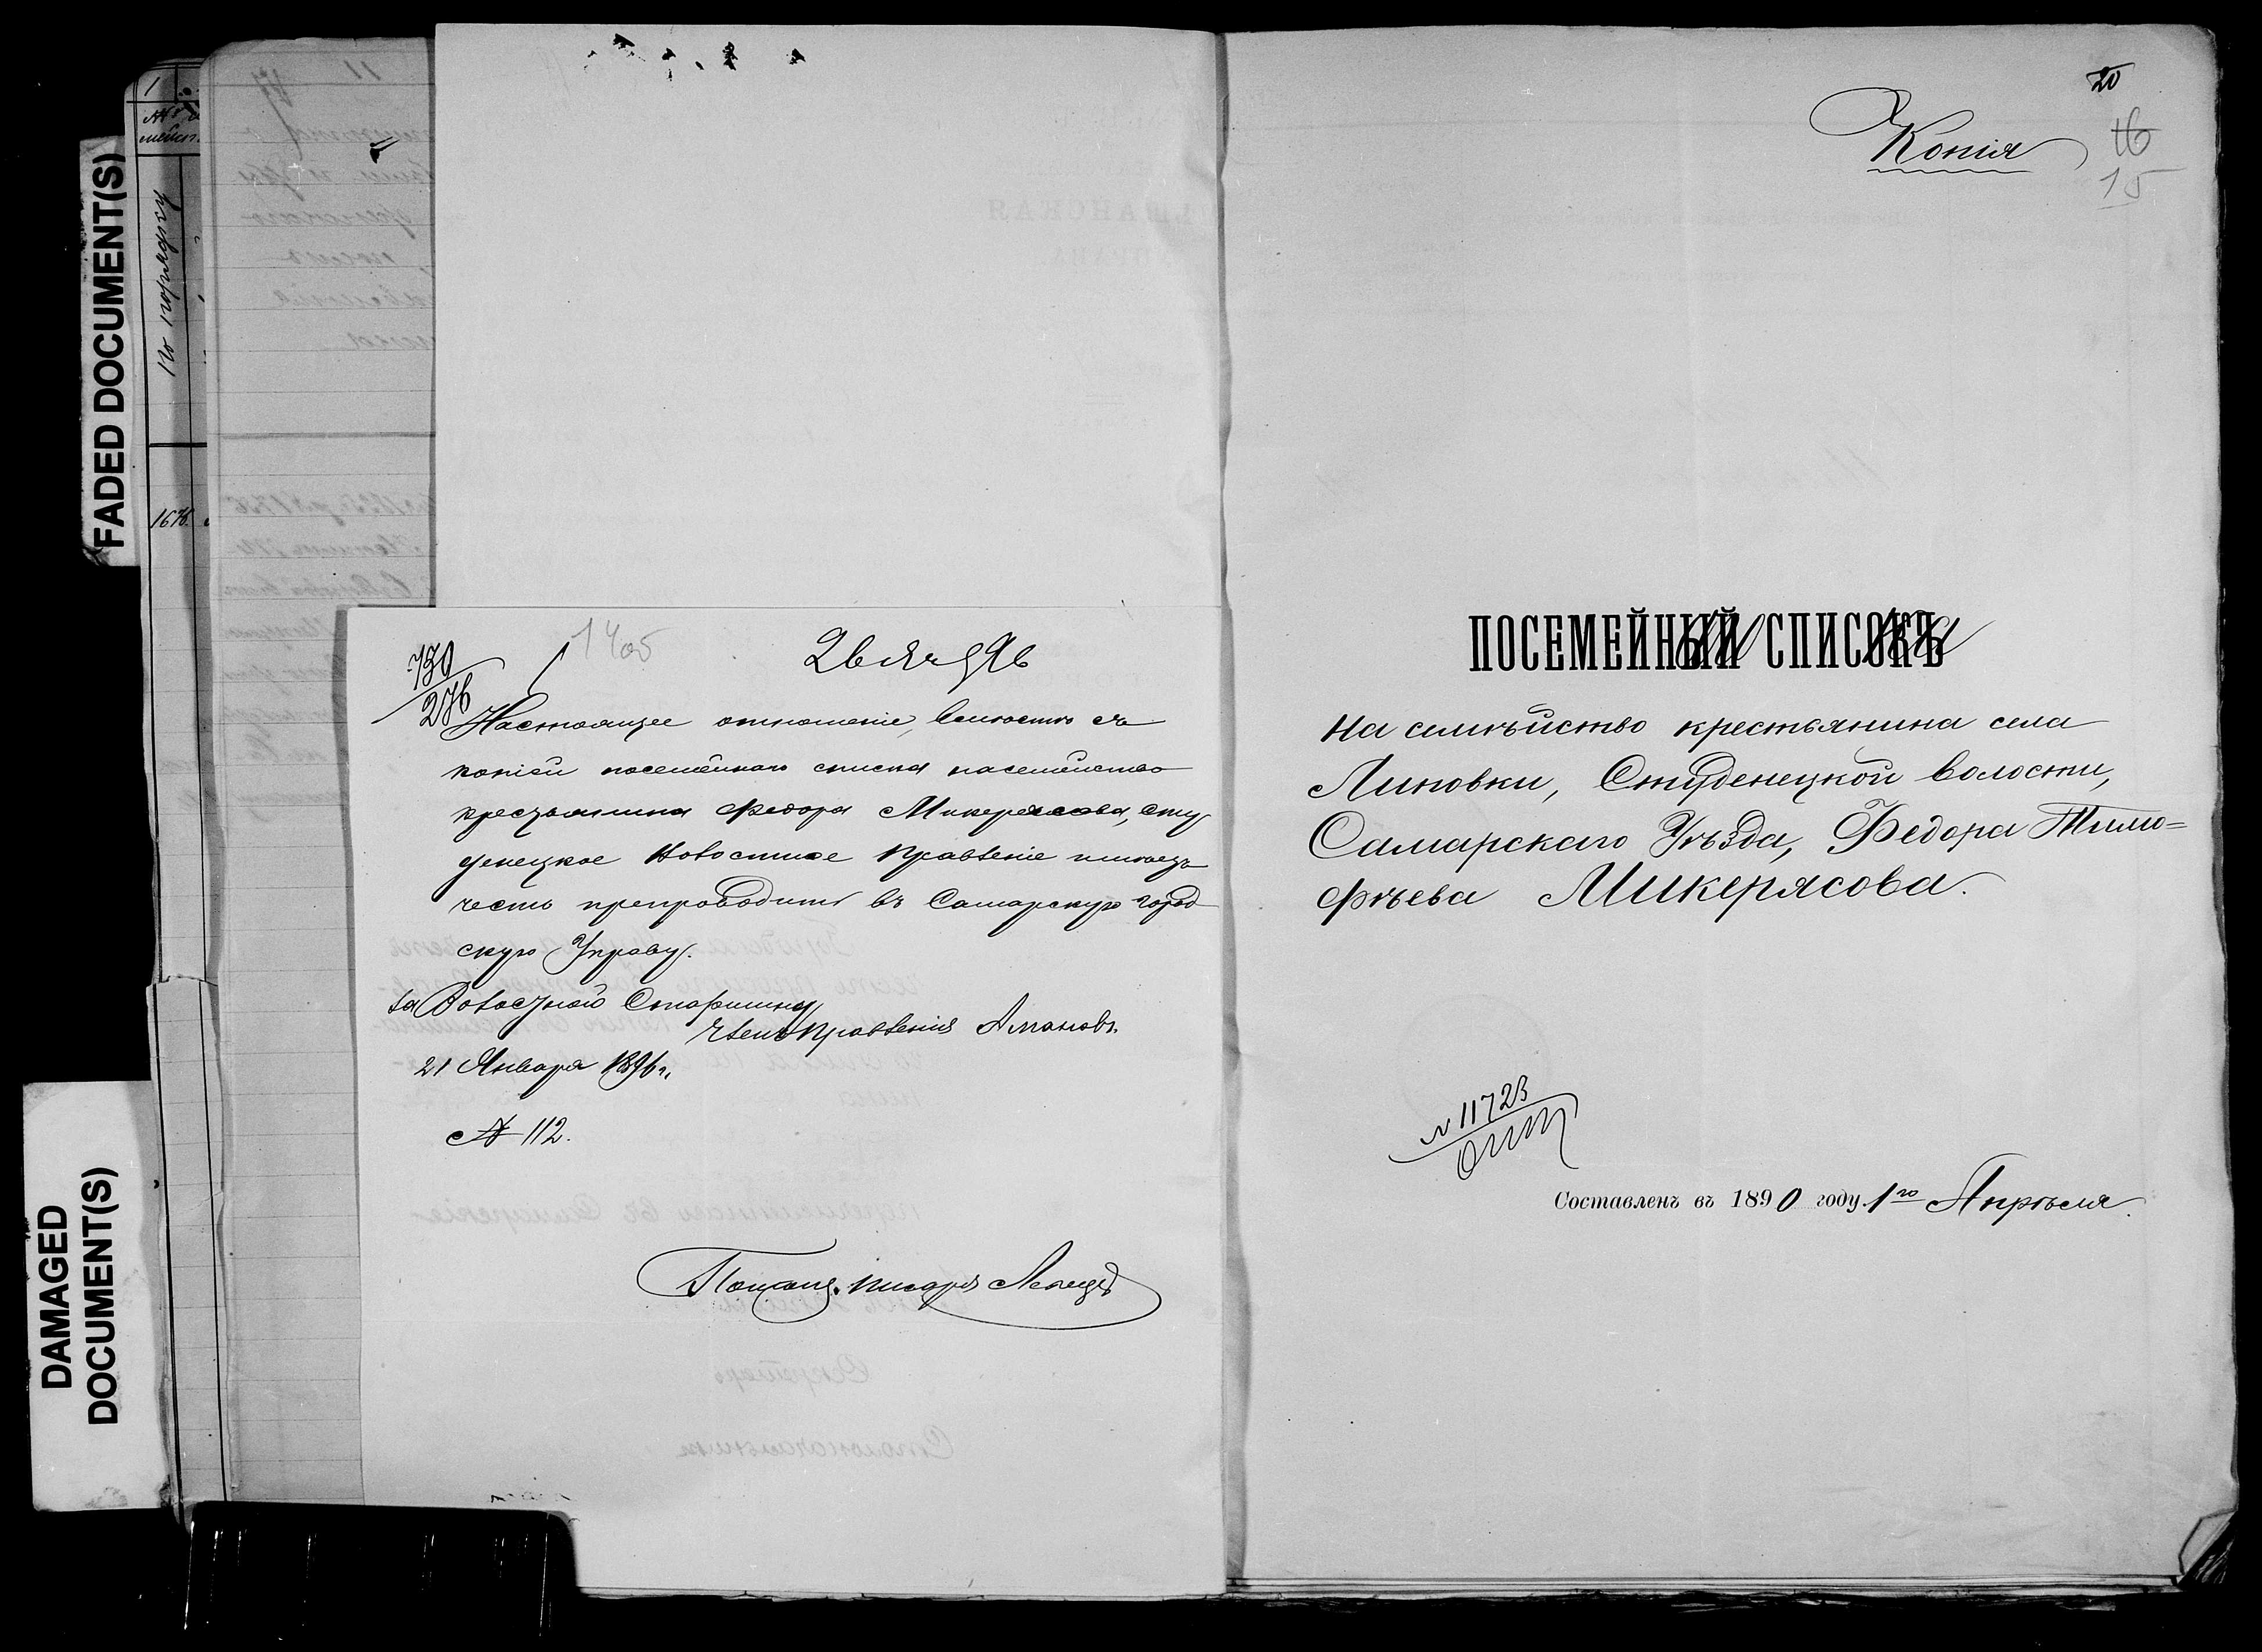 FADED DOCUMENT(S)
DAMAGED
DOCUMENT(S)
1
по порядку
1676.
11
730
276
1405
26 Янв 96
Настоящее отношеніе, вмѣстѣ съ
копіей посемейнаго списка на семейство
крестьянина Федора Микерясова, Сту
денецкое Волостное Правленіе имѣетъ
честь препроводить въ Самарскую город
скую Управу.
За Волостного Старшину
Членъ Правленія Амановъ.
21 Января 1896 г.
№ 112.
писаря
20
Копія
16
15
ПОСЕМЕЙНЫЙ СПИСОКЪ
На семѣйство крестьянина села
Липовки, Студенецкой волости,
Самарскаго Уѣзда, Федора Тимо=
фѣева Микерясова.
№ 11723
Составленъ въ 1890 году 1го Апрѣля.